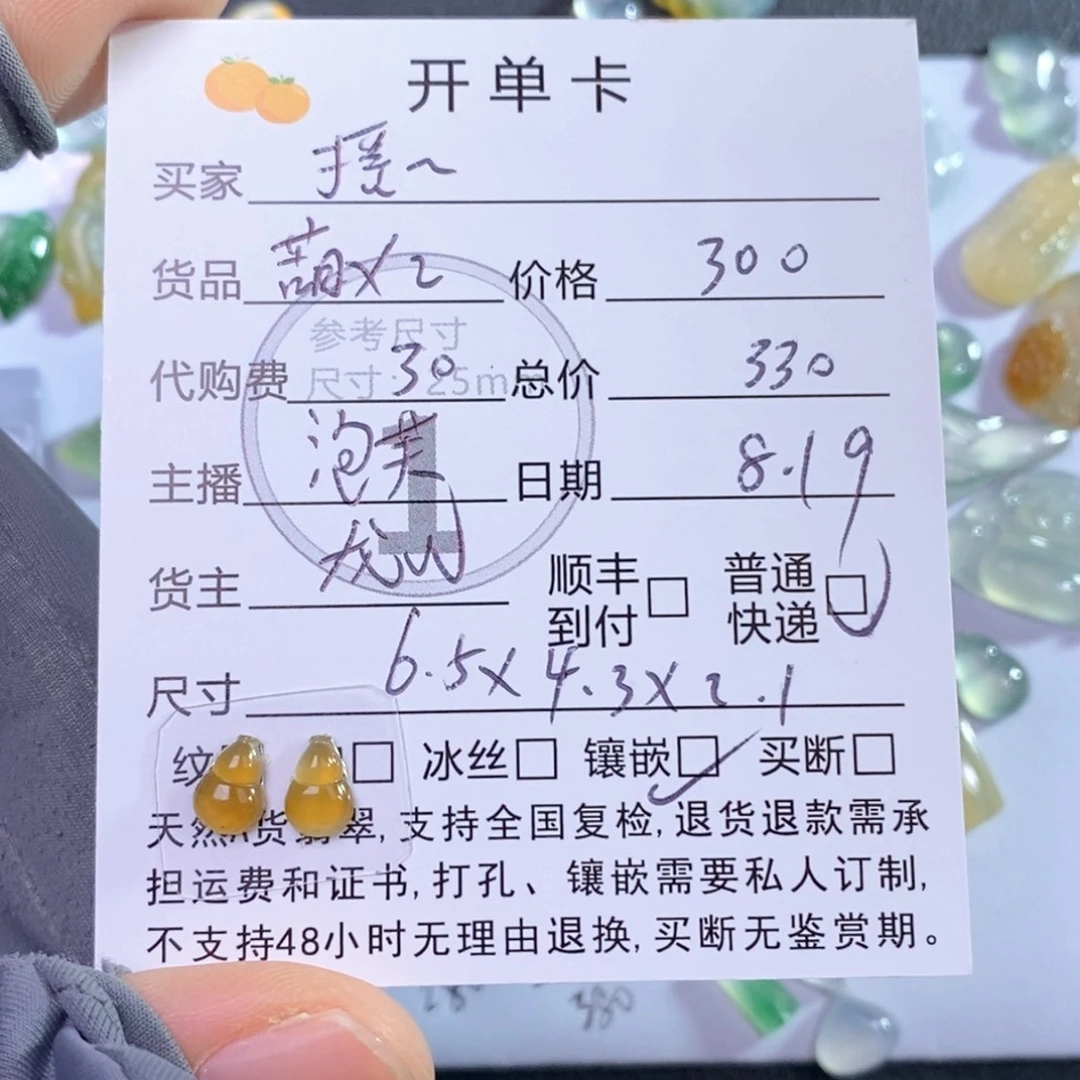 开单卡
买家 摇~
货品 葫×2 价格 300
参考尺寸
代购费 30 总价 330
主播 泡芙 日期 8.19
1
货主 龙山 顺丰到付□ 普通快递□
尺寸 6.5×4.3×2.1
纹 □ 冰丝□ 镶嵌□ 买断□
天然A货翡翠,支持全国复检,退货退款需承
担运费和证书,打孔、镶嵌需要私人订制,
不支持48小时无理由退换,买断无鉴赏期。
380